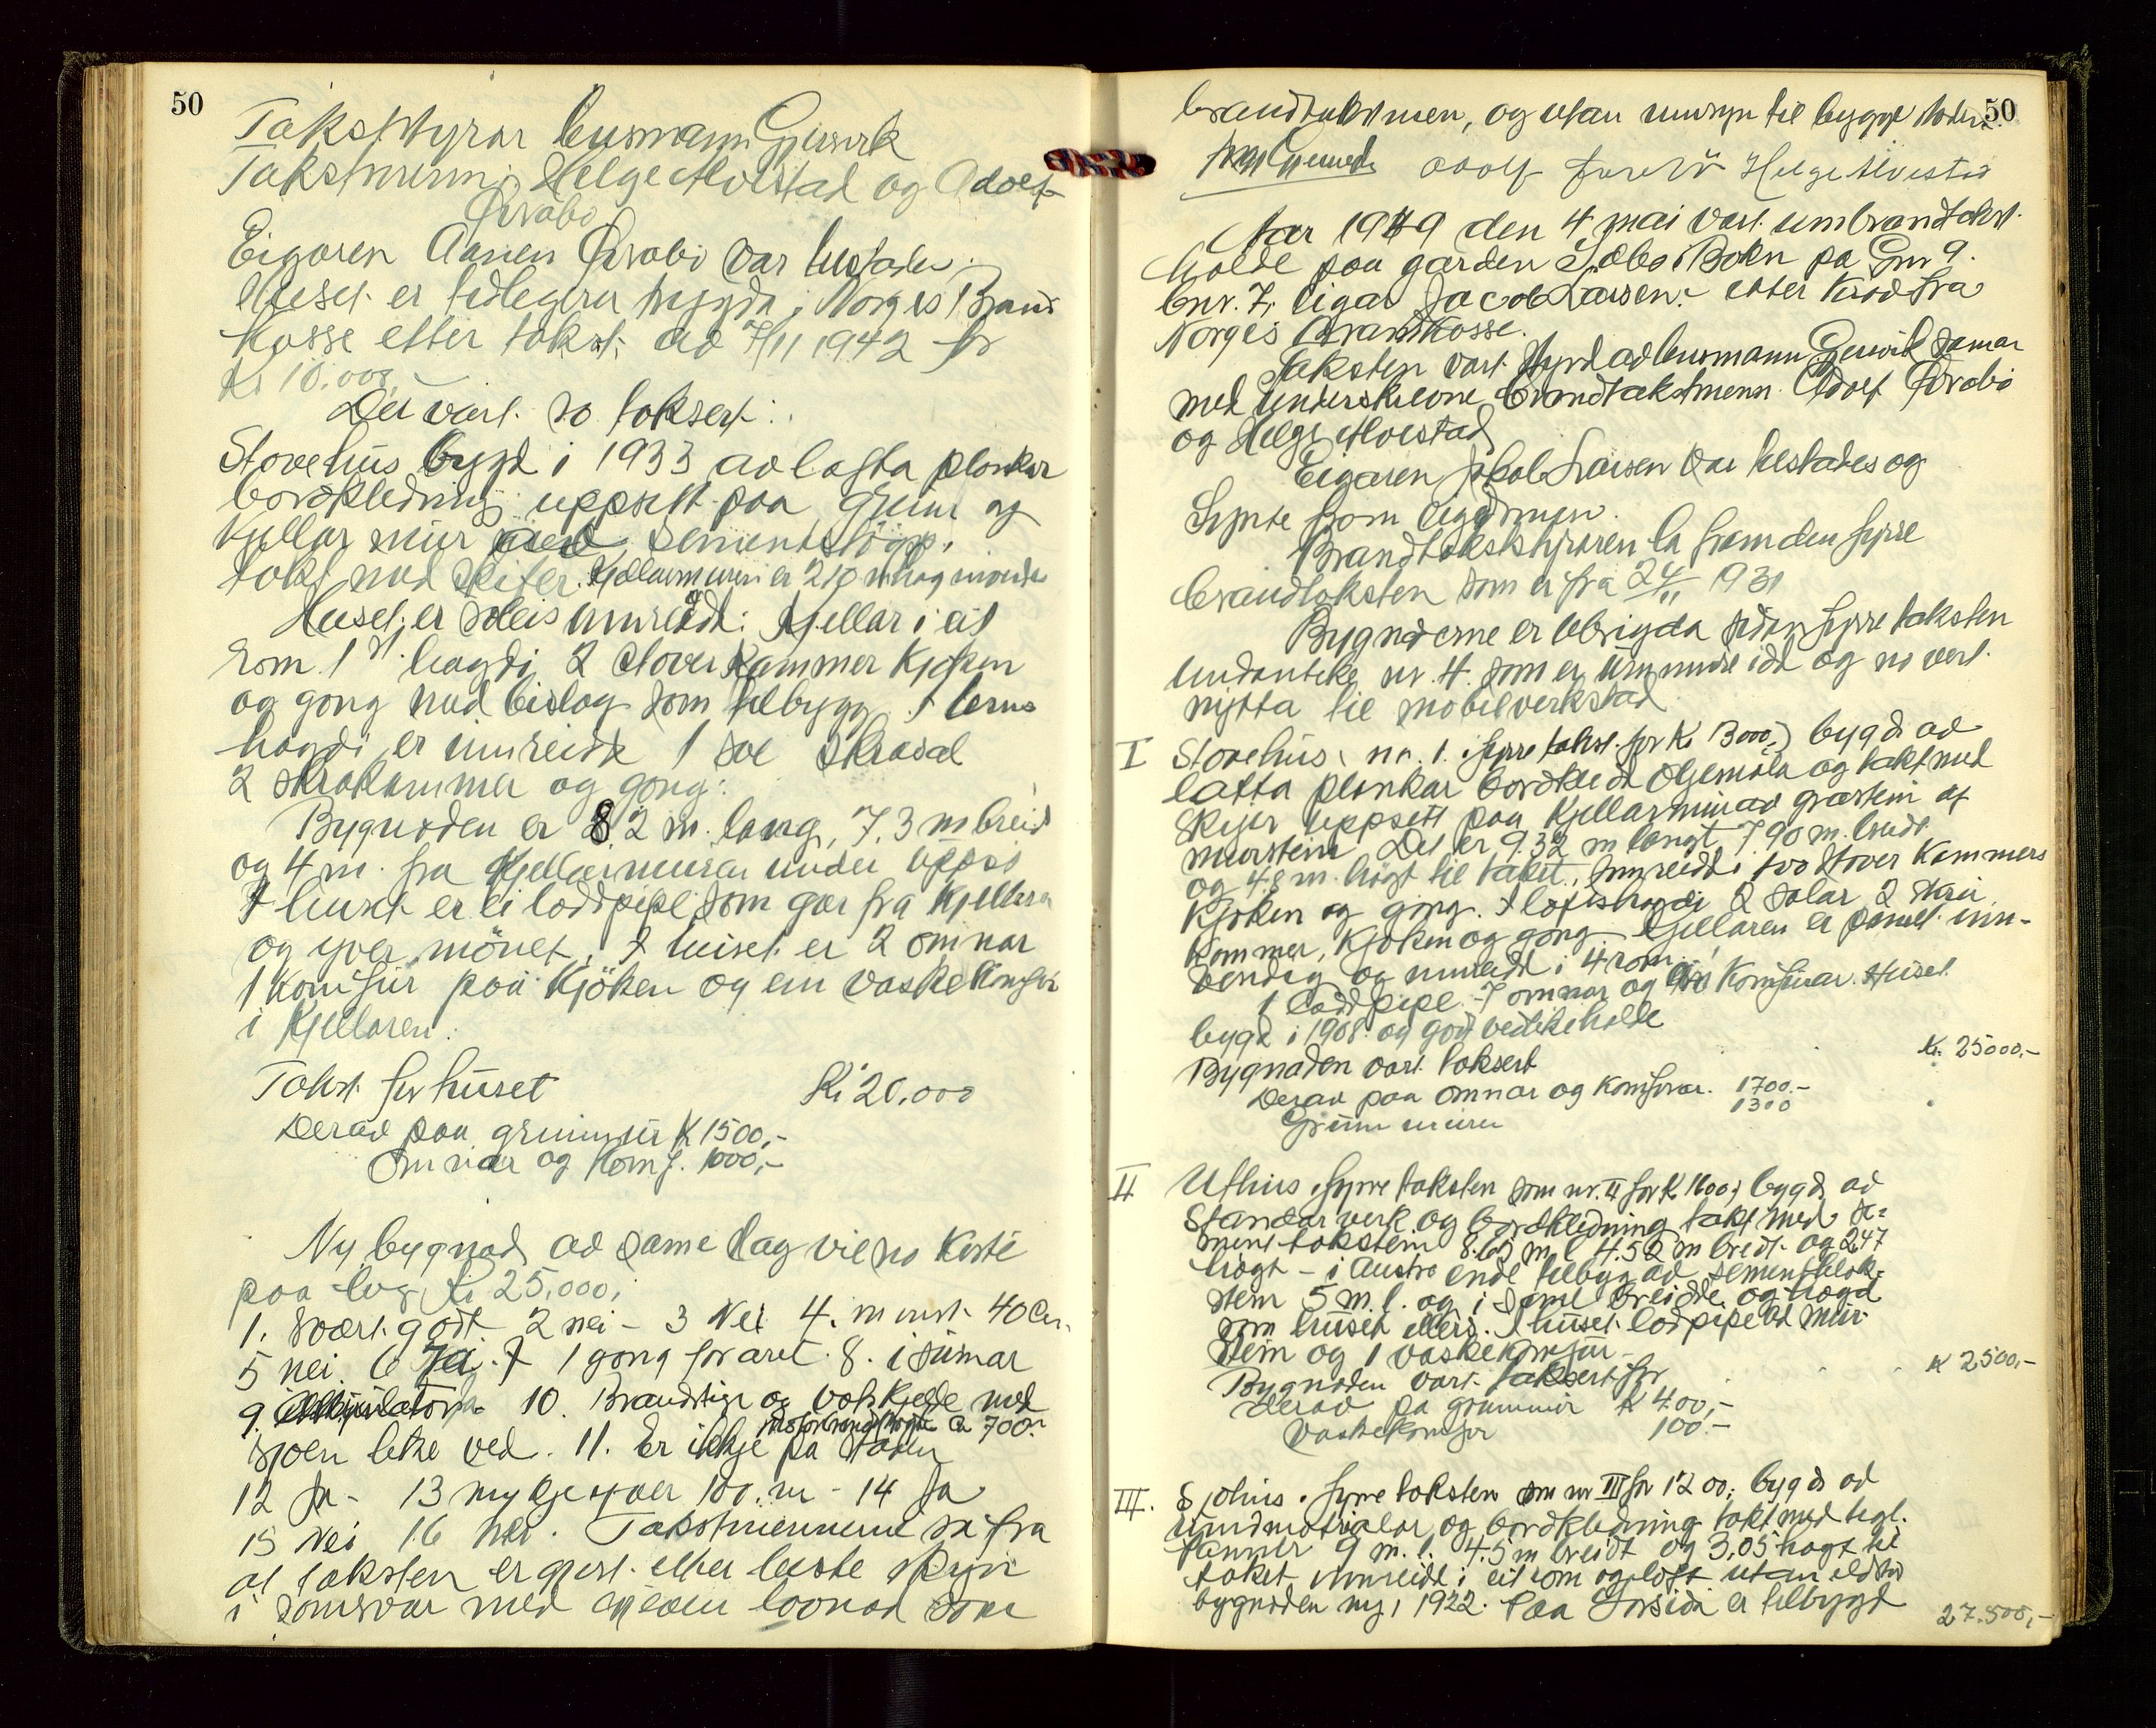 50
Takststyrar lensmann Gjersvik
Takstmenn: Helge Alvestad og Adolf
Øvrabø
Eigaren Aanen Øvrabø var tilstades.
Huset er tidlegare trygda i Norges Brand
Kasse etter takst av 7/11 1942 for
kr 10.000,-
Det vart so taksert:
Stovehus bygd i 1933 av lafta plankar
bordkledning uppsett paa grunn og
kjellar mur sementstøypt,
takt med skifer. Kjellarmuren er 210 m høg
Huset er soleis innreidt: Kjellar i eit
rom. 1st høgdi 2 stover kammer kjøken
og gong med bislag som tilbygg. I
høgdi er innreidt 1 sval skråsal
2 skråkammer og gong.
Bygnaden er 8,2 m. lang, 7,3 m breid
og 4 m. fra kjellarmuren under upps
I huset er ei loddpipe som gar frå kjellaren
og yver mönet. I huset er 2 omnar
1 komfur paa kjöken og ein vaskekomfur
i kjellaren.
Takst for huset Kr 20.000
Derav paa grunnmur K 1500,-
Omnar og komf. 1000,-
Ny bygnad av same slag vil no koste
paa lag Kr 25.000,
1. svært godt 2 nei - 3 Nei 4. minst 40 Cm.
5 nei. 6 Ja. 7 1 gong for aret. 8. i sumar
9. 10. Brandstige og vatskjelde med
sjøen like ved. 11. Er ikkje på staden Ca 700 m
12 Ja - 13 mykje yver 100 m - 14 Ja
15 Nei 16 Takstmennene sa fra
at taksten er gjort etter beste skjøn
i samsvar med lovnad som
50
brandtakstmen, og utan umsyn til bygge
Adolf Øvrebø Helge Alvestad
Aar 1949 den 4 mai vart umbrandtakst
halde paa garden Sæbø i Bokn på Gnr 9.
bnr. 7, eigar Jacob Larsen - etter krav fra
Norges Brandkasse.
Taksten vart styrd av lensmann Gjersvik saman
med underskrevne brandtakstmenn Adolf Øvrabø
og Helge Alvestad
Eigaren Jakob Larsen var tilstades og
synte fram eigedomen.
Brandtakststyraren la fram den fyrre
brandtaksten som er fra 24/11 1931
Bygnaderne er ubrigda sidan fyrre taksten
undanteke nr. 4. som er uminnreidd og no vert
nytta til mobelverkstad
I Stovehus, nr. 1. i fyrre takst for Kr 13000,- bygd av
lafta plankar bordkledt oljemåla og takt med
skifer uppsett paa kjellarmur av graastein og
murstein. Det er 9.32 m langt 7.90 m. breidt
og 4,8 m. högt til taket, innreidt i tvo stover kammers
kjøken og gong. I loftshøgdi 2 salar 2 små
kammer, kjøken og gong. Kjellaren er panelt inn-
vendig og innreidt i 4 rom.
1 loddpipe - 7 omnar og tvo komfurar. Huset
bygd i 1908. og godt vedlikeholde
Bygnaden vart taksert Kr. 25000,-
Derav paa omnar og komfurar. 1700.-
Grunn muren 1300
II Uthus i fyrre taksten som nr. II for Kr 1600,- bygd av
Standar verk og bordkledning takt med se-
ment takstein 8.65 m l 4.52 m breidt og 2,47
högt - i Austre ende tilbyg av sementblok-
stein 5 m. l. og i same breidde og høgd
som huset ellers. I huset lodpipe av mur-
stein og 1 vaskekomfur -
Bygnaden vart taksert for K 2500,-
derav på grunnmur K 400,-
Vaskekomfur 100.-
III. Sjøhus i fyrre taksten som nr III for 1200,- bygd av
bindmatrialar og bordkledning takt med tegl-
panner 9 m. l. 4.5 m breidt og 3,05 høgt til
taket innreidt i eit rom og loft utan eldsted
bygnaden ny i 1922. Paa Forsida er tilbygd
27.500,-